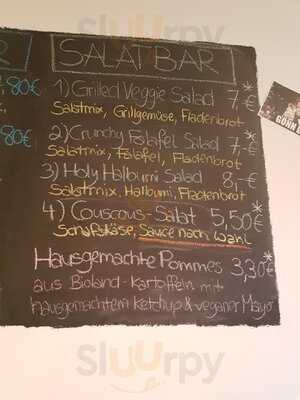 Sluurpy
R
SALATBAR
,80€
1) Grilled Veggie Salad 7,-€*
Salatmix, Grillgemüse, Fladenbrot
,80€
2) Crunchy Falafel Salad 7,-€*
Salatmix, Falafel, Fladenbrot
3) Holy Halloumi Salad 8,-€
Salatmix, Halloumi, Fladenbrot
4) Couscous-Salat 5,50€*
Schafskäse, Sauce nach Wahl
Hausgemachte Pommes 3,30€*
aus Bioland-Kartoffeln mit
hausgemachtem Ketchup & veganer Mayo
Sluurpy